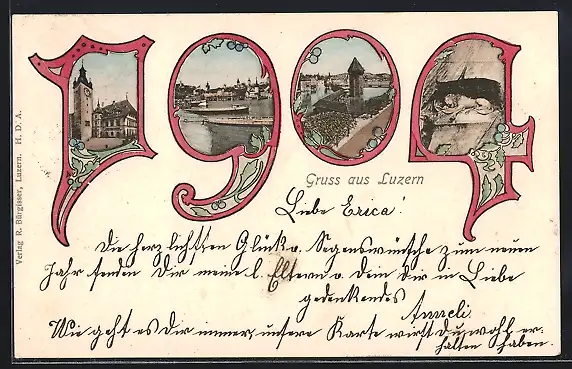 1904
Verlag R. Bürgisser, Luzern. H. D. A.
Gruss aus Luzern
Liebe Erica!
Die herzlichsten Glück u. Segenswünsche zum neuen
Jahr senden Dir meine l. Eltern u. Dein dir in Liebe
gedenkendes
Anneli.
Wie geht es Dir immer, unsere Karte wirst Du wohl er-
halten haben.